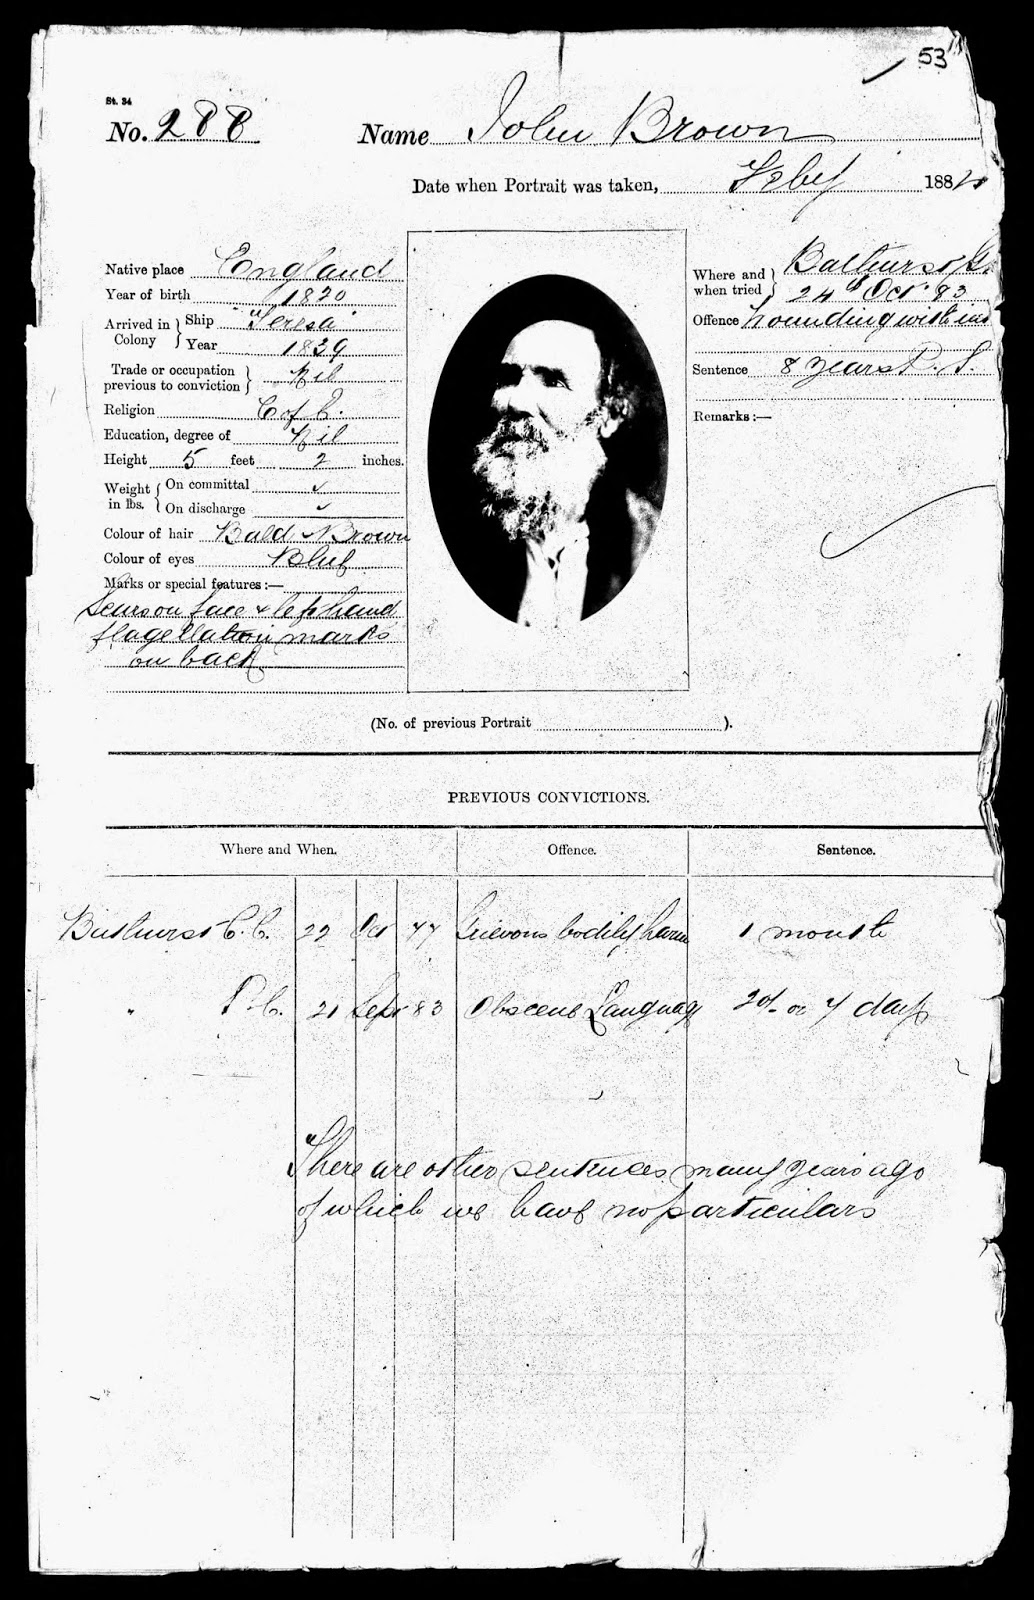 53
St. 34
No. 288 Name John Brown
Date when Portrait was taken, Feby 1884
Native place England
Year of birth 1820
Arrived in Colony } Ship "Teresa"
Year 1839
Trade or occupation previous to conviction } Nil
Religion C of E.
Education, degree of Nil
Height 5 feet 2 inches.
Weight in lbs. { On committal
On discharge
Colour of hair Bald & Brown
Colour of eyes Blue
Marks or special features:—
Scars on face & left hand
flagellation marks
on back
Where and when tried } Bathurst
24th Oct. 83
Offence Wounding with int
Sentence 8 years P. S.
Remarks:—
(No. of previous Portrait ).
PREVIOUS CONVICTIONS.
Where and When. Offence. Sentence.
Bathurst C.C. 22 Oct 77 Grievous bodily harm 1 month
" P.C. 21 Sept 83 Obscene Language 20/- or 7 days
"There are other sentences many years ago
of which we have no particulars